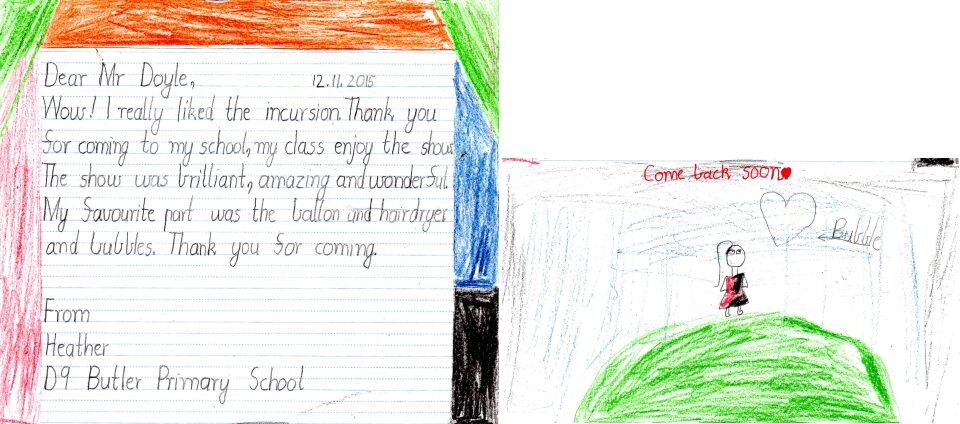 Dear Mr Doyle, 12.11.2015
Wow! I really liked the incursion. Thank you
for coming to my school, my class enjoy the show.
The show was brilliant, amazing and wonderful.
My favourite part was the ballon and hairdryer
and bubbles. Thank you for coming.
From
Heather
D9 Butler Primary School
Come back soon
Bubble